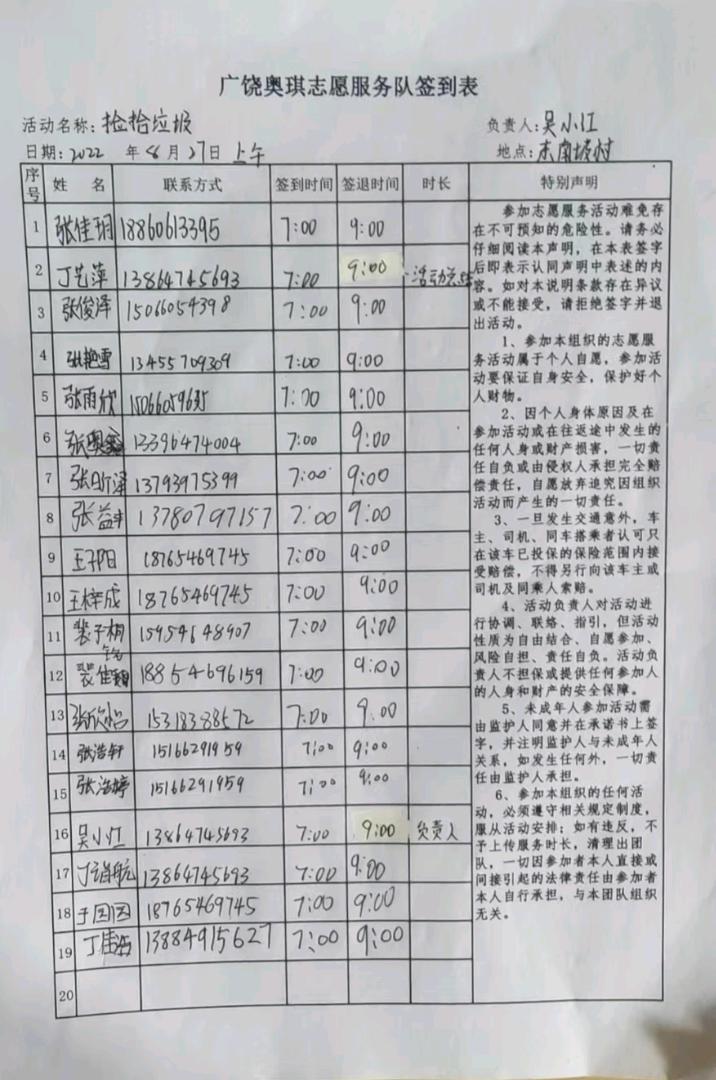 广饶奥琪志愿服务队签到表
活动名称：捡拾垃圾
负责人：吴小红
日期：2022 年 8 月 27 日 上午
地点：
序号 姓 名 联系方式 签到时间 签退时间 时长 特别声明
1 张佳玥 18860613395 7:00 9:00
2 丁艺萍 13864745693 7:00 9:00 活动总结
3 张俊泽 15066054398 7:00 9:00
4 张艳雪 13455709309 7:00 9:00
5 张雨欣 15066059635 7:00 9:00
6 张奥鑫 13396474004 7:00 9:00
7 张昕泽 13793975399 7:00 9:00
8 张益丰 13780797157 7:00 9:00
9 王子阳 18765469745 7:00 9:00
10 王梓成 18765469745 7:00 9:00
11 裴子桐 15954648907 7:00 9:00
12 裴佳 18854696159 7:00 9:00
13 张欣怡 15318388572 7:00 9:00
14 张浩轩 15166291959 7:00 9:00
15 张浩婷 15166291959 7:00 9:00
16 吴小红 13864745693 7:00 9:00 负责人
17 丁浩航 13864745693 7:00 9:00
18 于园园 18765469745 7:00 9:00
19 丁佳 13884915627 7:00 9:00
20
参加志愿服务活动难免存
在不可预知的危险性。请务必
仔细阅读本声明，在本表签字
后即表示认同声明中表述的内
容。如对本说明条款存在异议
或不能接受，请拒绝签字并退
出活动。
1、参加本组织的志愿服
务活动属于个人自愿，参加活
动要保证自身安全，保护好个
人财物。
2、因个人身体原因及在
参加活动或在往返途中发生的
任何人身或财产损害，一切责
任自负或由侵权人承担完全赔
偿责任，自愿放弃追究因组织
活动而产生的一切责任。
3、一旦发生交通意外，车
主、司机、同车搭乘者认可只
在该车已投保的保险范围内接
受赔偿，不得另行向该车主或
司机及同乘人索赔。
4、活动负责人对活动进
行协调、联络、指引，但活动
性质为自由结合、自愿参加、
风险自担、责任自负。活动负
责人不担保或提供任何参加人
的人身和财产的安全保障。
5、未成年人参加活动需
由监护人同意并在承诺书上签
字，并注明监护人与未成年人
关系，如发生任何外，一切责
任由监护人承担。
6、参加本组织的任何活
动，必须遵守相关规定制度，
服从活动安排；如有违反，不
予上传服务时长，清理出团
队，一切因参加者本人直接或
间接引起的法律责任由参加者
本人自行承担，与本团队组织
无关。